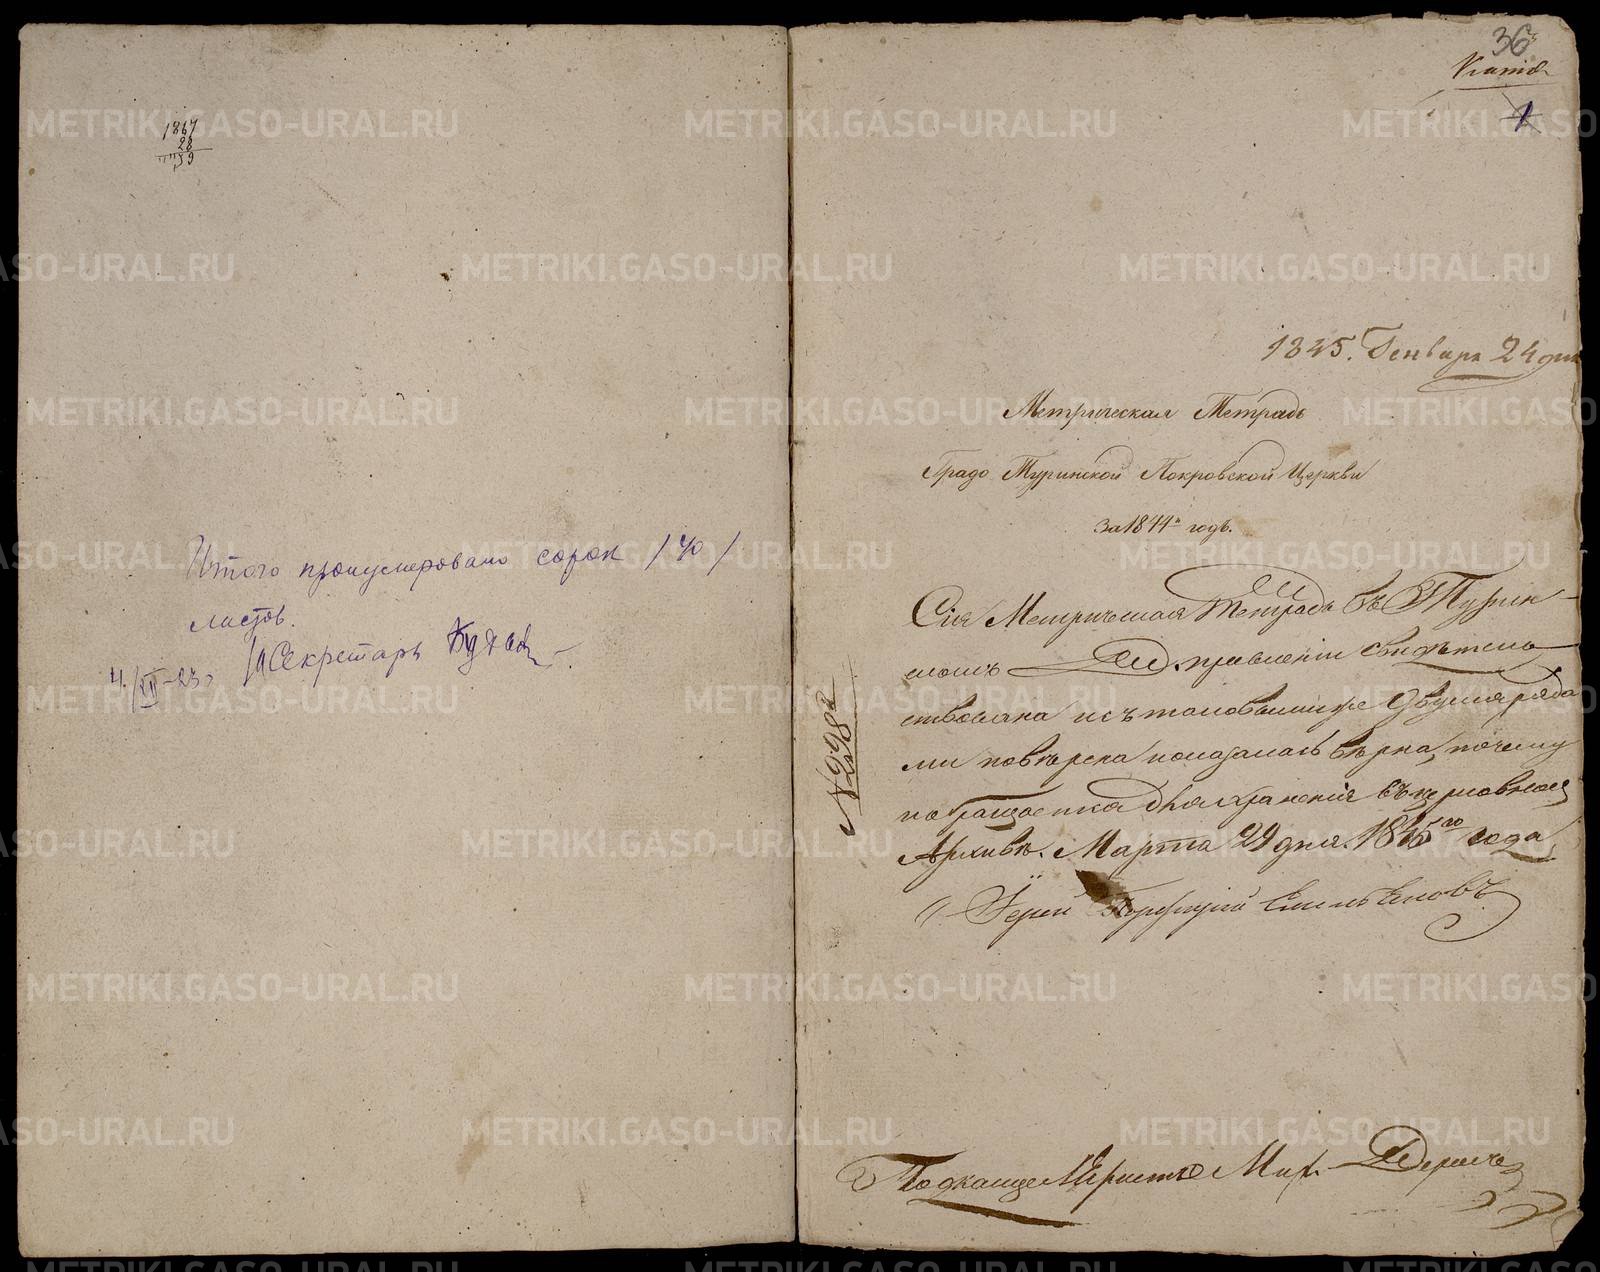 1867
28
Итого пронумеровано сорок /40/
листов.
Секретарь
36
1
1845. Генваря 24 дня
Метрическая Тетрадь
Градо Туринской Покровской Церкви
за 1844й годъ.
Сія Метрическая Тетрадь въ Турин-
скомъ Дух. правленіи свидѣтель-
ствована и съ таковыми же двумя ряда
ми повѣрена и оказалась вѣрна, почему
возращается для храненія въ церковномъ
Архивѣ. Марта 29 дня 1845го года
Іерей Емельяновъ
Подканцеляристъ Мих.
METRIKI.GASO-URAL.RU